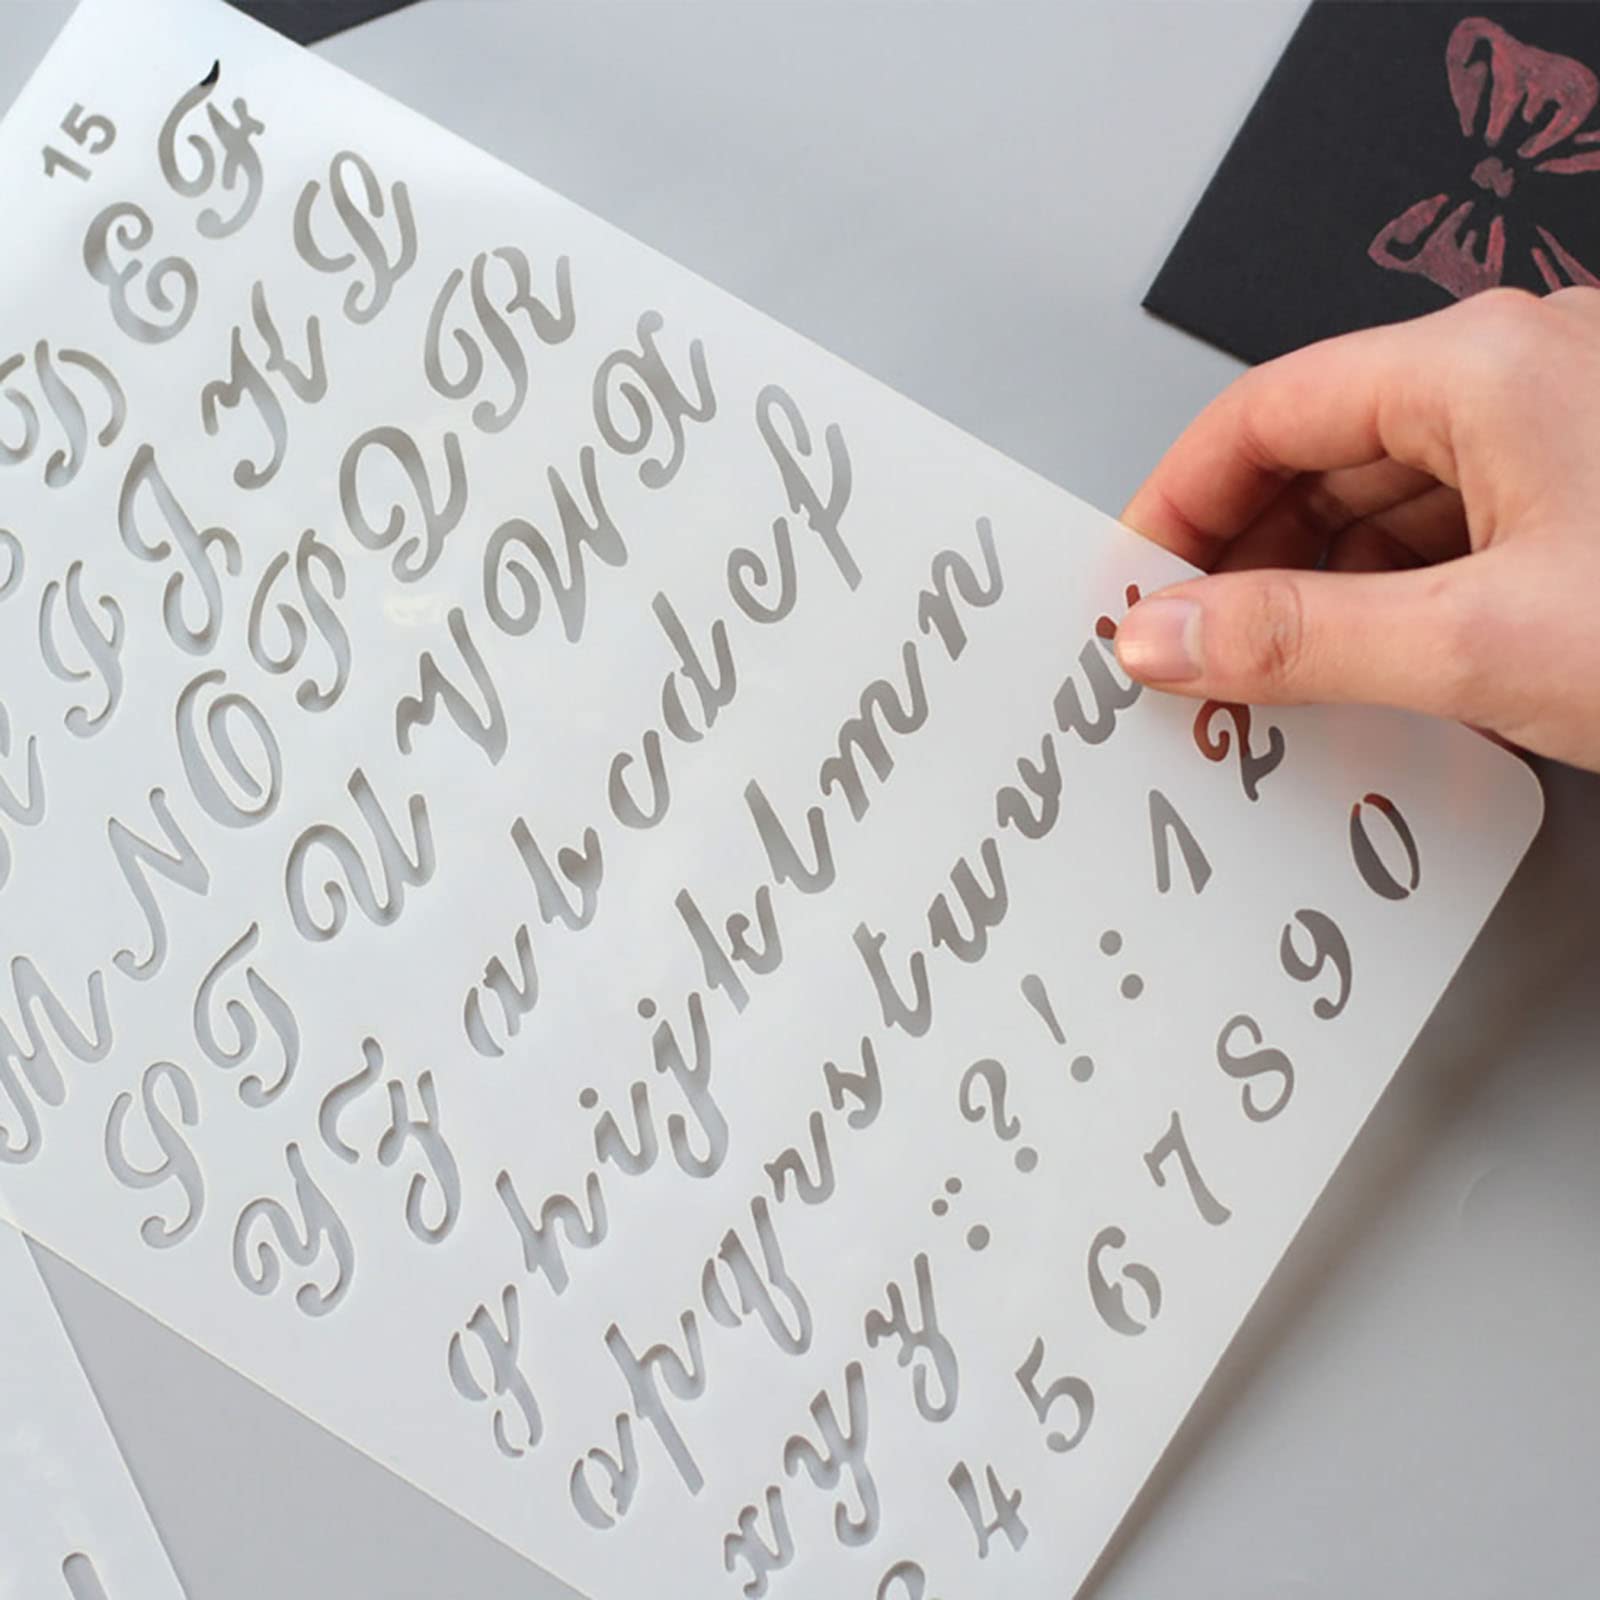 15
D E F
I J K L
M N O P Q R
S T U V W X
Y Z a b c d e f
g h i j k l m n
o p q r s t u v w
x y z ? ! : 1 2
4 5 6 7 8 9 0